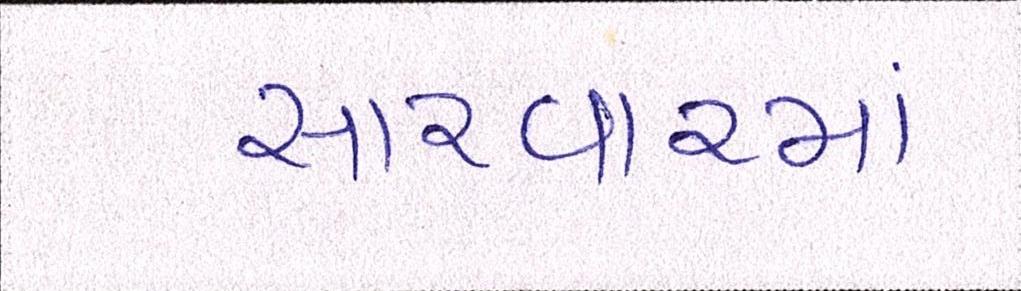 સારવારમાં